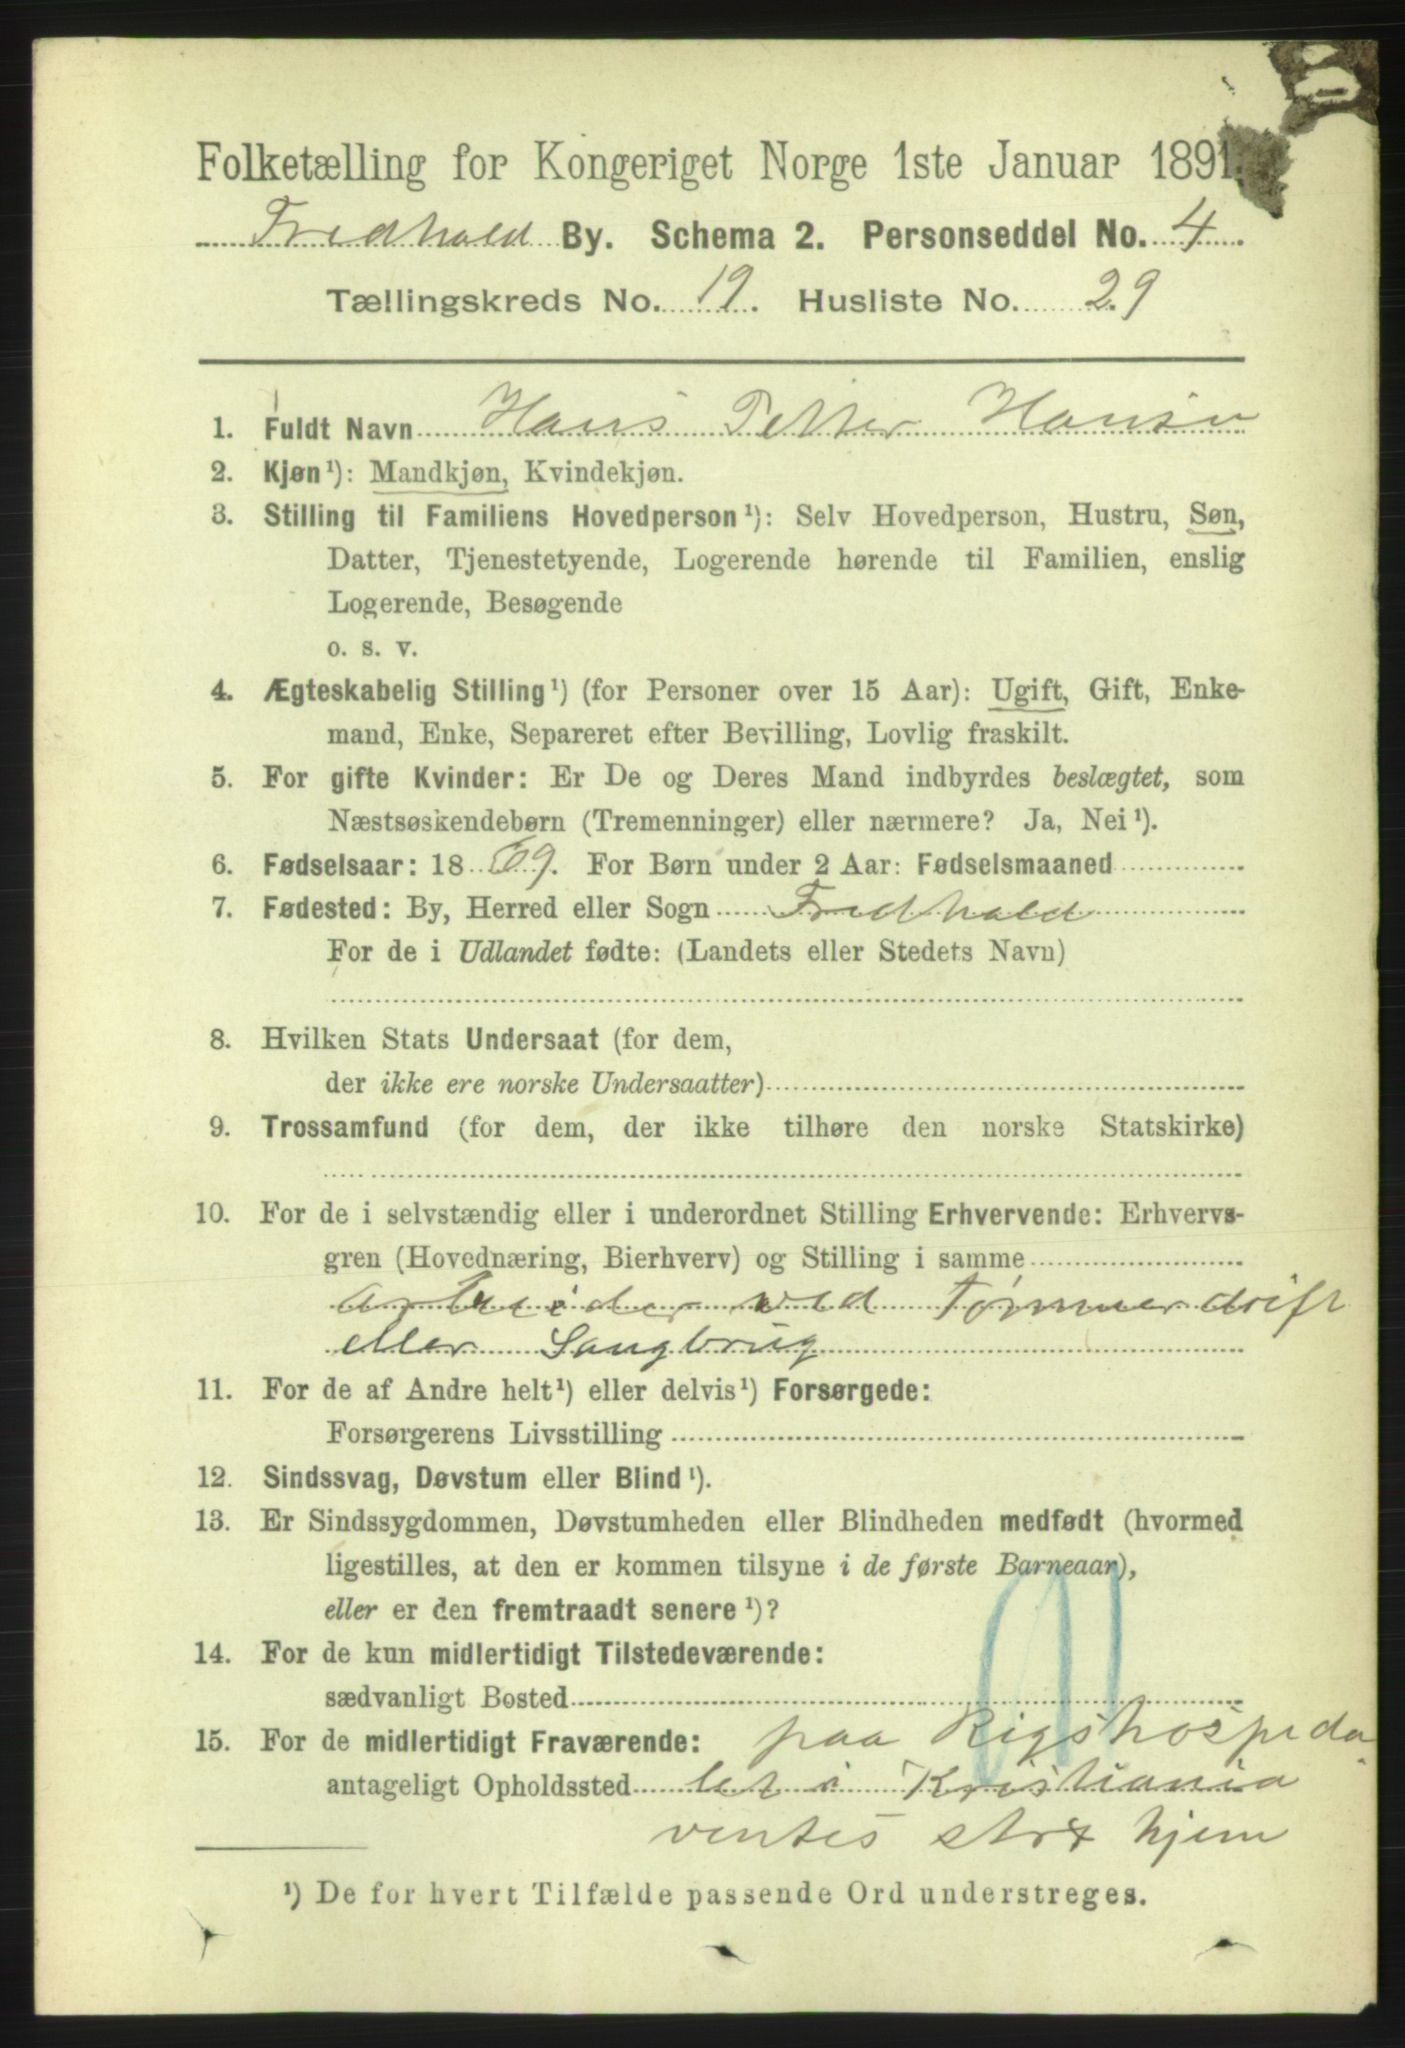 Folketælling for Kongeriget Norge 1ste Januar 1891.
Fredhald By. Schema 2. Personseddel No. 4
Tællingskreds No. 19. Husliste No. 29
1. Fuldt Navn Hans Petter Hansen
2. Kjøn¹): Mandkjøn, Kvindekjøn.
3. Stilling til Familiens Hovedperson¹): Selv Hovedperson, Hustru, Søn,
Datter, Tjenestetyende, Logerende hørende til Familien, enslig
Logerende, Besøgende
o. s. v.
4. Ægteskabelig Stilling¹) (for Personer over 15 Aar): Ugift, Gift, Enke-
mand, Enke, Separeret efter Bevilling, Lovlig fraskilt.
5. For gifte Kvinder: Er De og Deres Mand indbyrdes beslægtet, som
Næstsøskendebørn (Tremenninger) eller nærmere? Ja, Nei¹).
6. Fødselsaar: 1869. For Børn under 2 Aar: Fødselsmaaned
7. Fødested: By, Herred eller Sogn Fredhald
For de i Udlandet fødte: (Landets eller Stedets Navn)
8. Hvilken Stats Undersaat (for dem,
der ikke ere norske Undersaatter)
9. Trossamfund (for dem, der ikke tilhøre den norske Statskirke)
10. For de i selvstændig eller i underordnet Stilling Erhvervende: Erhvervs-
gren (Hovednæring, Bierhverv) og Stilling i samme
arbeider ved Tømmerdrift
eller Saugbrug
11. For de af Andre helt¹) eller delvis¹) Forsørgede:
Forsørgerens Livsstilling
12. Sindssvag, Døvstum eller Blind¹).
13. Er Sindssygdommen, Døvstumheden eller Blindheden medfødt (hvormed
ligestilles, at den er kommen tilsyne i de første Barneaar),
eller er den fremtraadt senere¹)?
14. For de kun midlertidigt Tilstedeværende:
sædvanligt Bosted
15. For de midlertidigt Fraværende: paa Rigshospida
antageligt Opholdssted let i Kristiania
ventes strx hjem
¹) De for hvert Tilfælde passende Ord understreges.